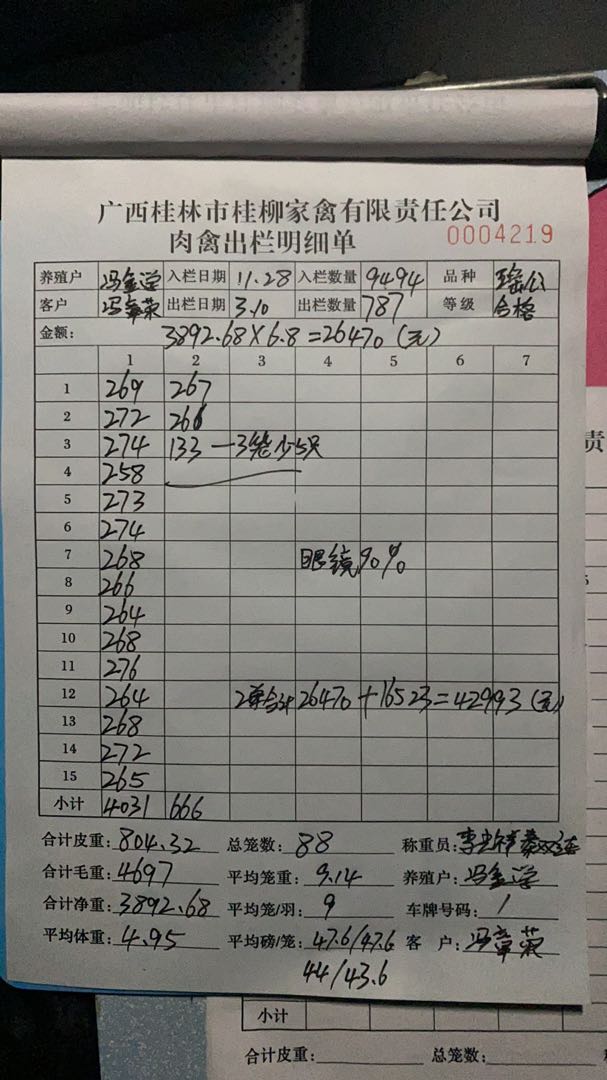 广西桂林市桂柳家禽有限责任公司
肉禽出栏明细单 0004219
养殖户 冯金学 入栏日期 11.28 入栏数量 9494 品种
客户 冯章荣 出栏日期 3.10 出栏数量 787 等级 合格
金额: 3892.68×6.8=26470(元)
1 2 3 4 5 6 7
1 269 267
2 272 266
3 274 133 一3笼少5只
4 258
5 273
6 274
7 268 眼镜90%
8 266
9 264
10 268
11 276
12 264 2单合计26470+16523=42993(元)
13 268
14 272
15 265
小计 4031 666
合计皮重: 804.32 总笼数: 88 称重员:
合计毛重: 4697 平均笼重: 9.14 养殖户: 冯金学
合计净重: 3892.68 平均笼/羽: 9 车牌号码: /
平均体重: 4.95 平均磅/笼: 47.6/47.6 客户: 冯章荣
44/43.6
责
小计
合计皮重: 总笼数: